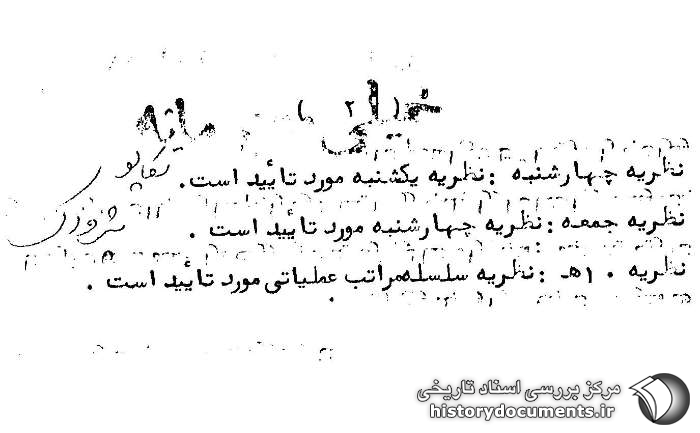 خیلی محرمانه
( ۲ )
نظریه چهارشنبه : نظریه یکشنبه مورد تائید است . تکاپو
نظریه جمعه : نظریه چهارشنبه مورد تائید است .
نظریه ۱۰ هـ : نظریه سلسله‌مراتب عملیاتی مورد تائید است .
مرکز بررسی اسناد تاریخی
historydocuments.ir